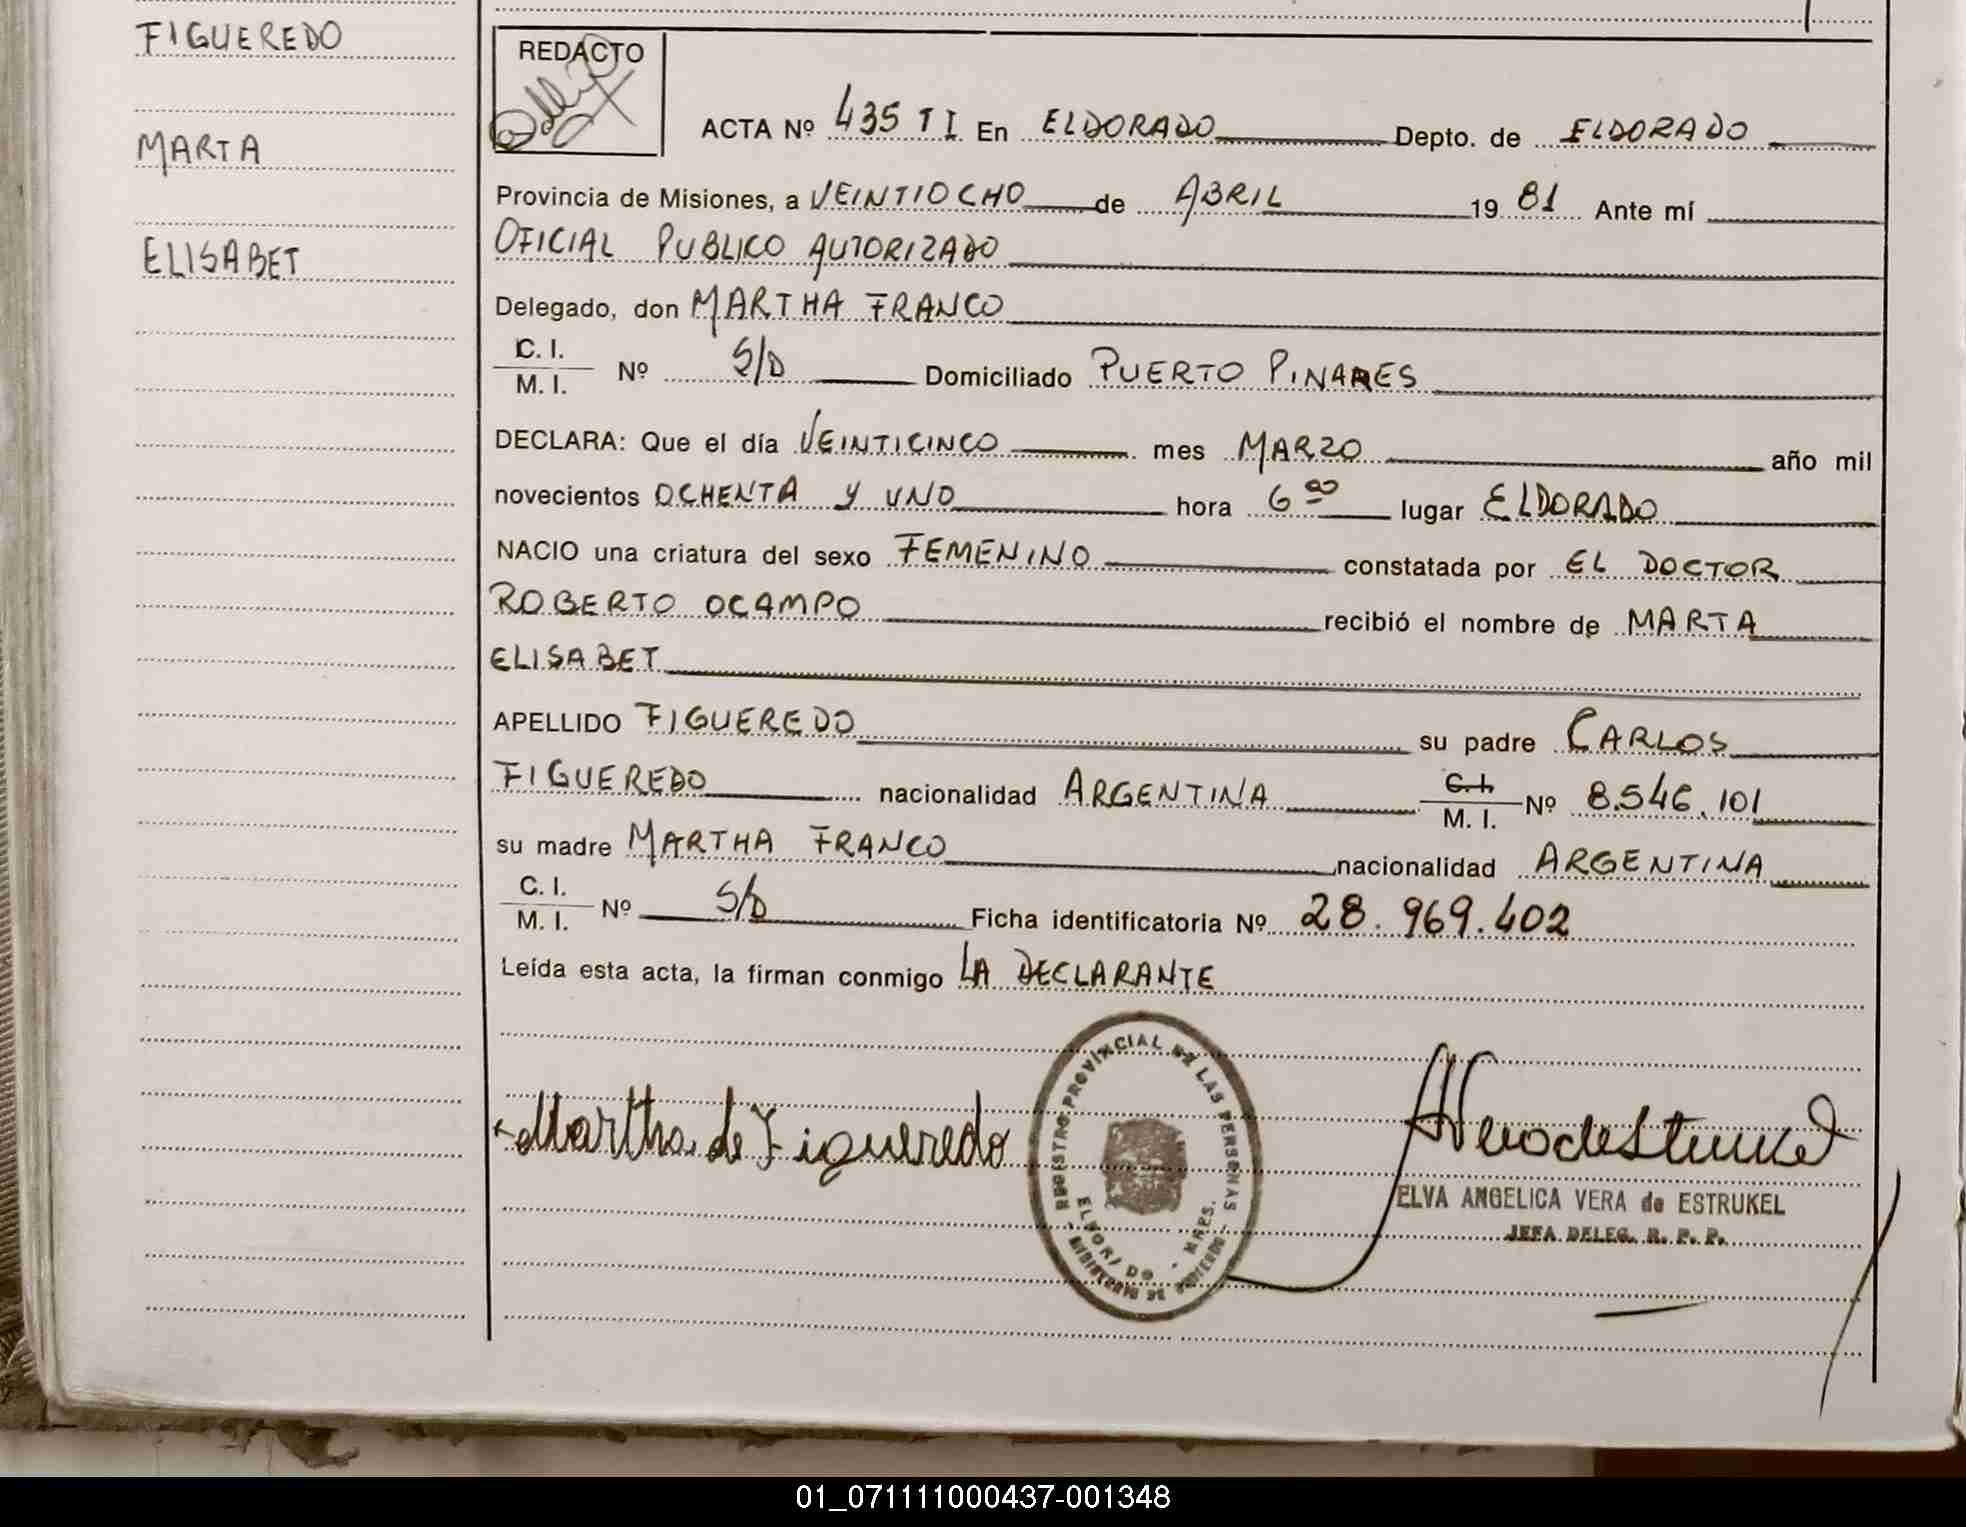 FIGUEREDO
MARTA
ELISABET
REDACTO
ACTA Nº 435 T I En ELDORADO Depto. de ELDORADO
Provincia de Misiones, a VEINTIOCHO de ABRIL 19 81 Ante mí
OFICIAL PUBLICO AUTORIZADO
Delegado, don MARTHA FRANCO
C. I.
M. I. Nº S/D Domiciliado PUERTO PINARES
DECLARA: Que el día VEINTICINCO mes MARZO año mil
novecientos OCHENTA Y UNO hora 6 00 lugar ELDORADO
NACIO una criatura del sexo FEMENINO constatada por EL DOCTOR
ROBERTO OCAMPO recibió el nombre de MARTA
ELISABET
APELLIDO FIGUEREDO su padre CARLOS
FIGUEREDO nacionalidad ARGENTINA C. I. M. I. Nº 8.546.101
su madre MARTHA FRANCO nacionalidad ARGENTINA
C. I.
M. I. Nº S/D Ficha identificatoria Nº 28.969.402
Leída esta acta, la firman conmigo LA DECLARANTE
Martha de Figueredo
REGISTRO PROVINCIAL DE LAS PERSONAS
ELDORADO - MNES.
MINISTERIO DE GOBIERNO
AVeradeEstrukel
ELVA ANGELICA VERA de ESTRUKEL
JEFA DELEG. R. P. P.
01_071111000437-001348